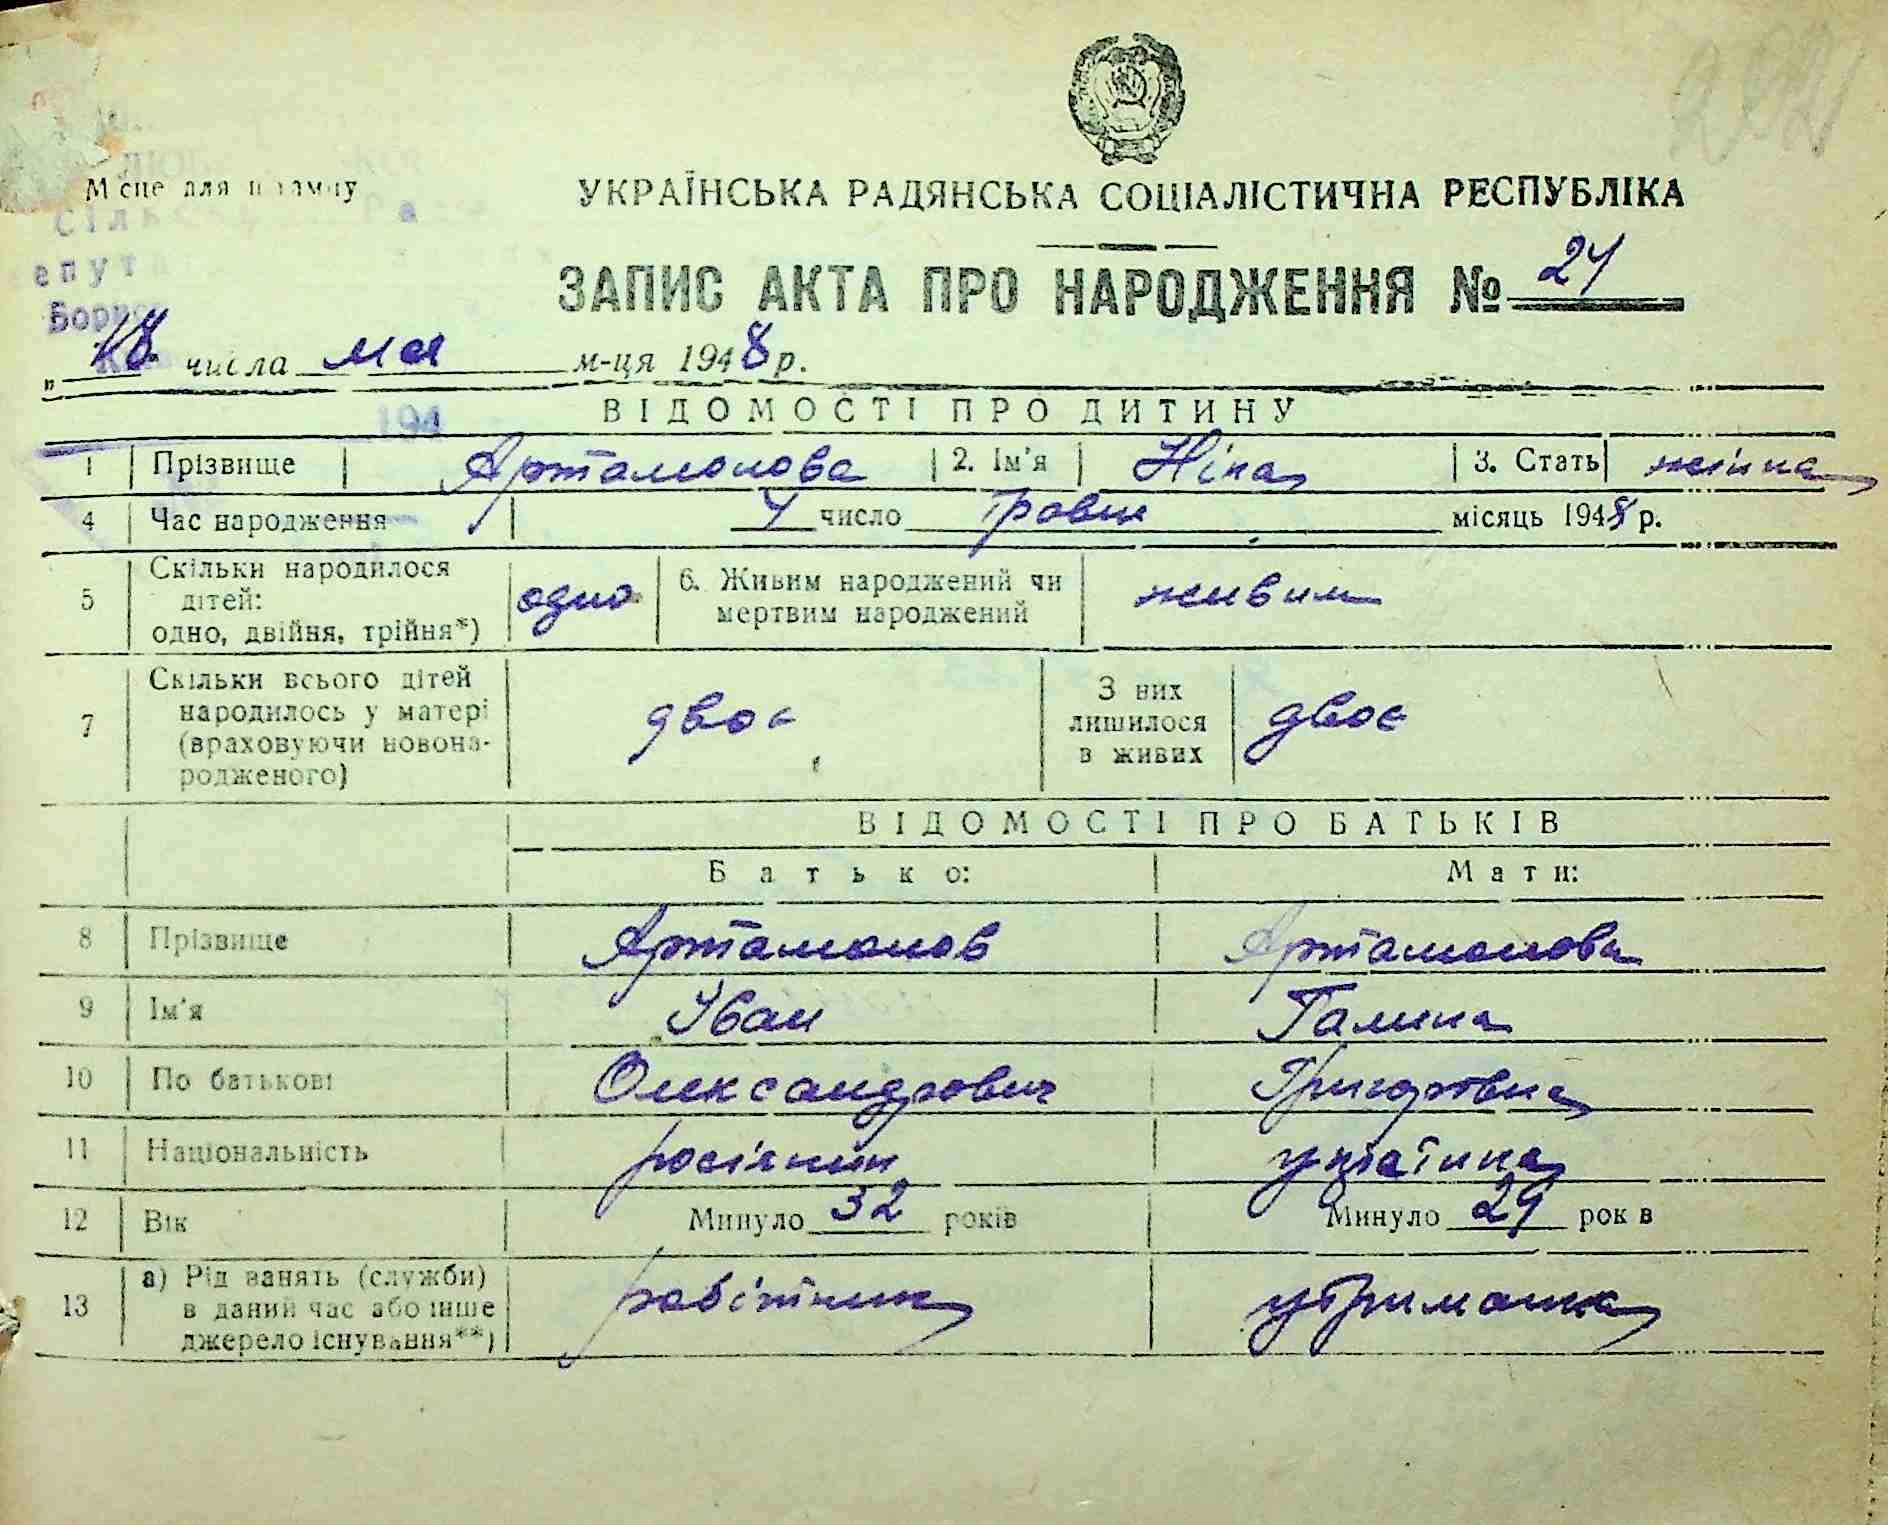 Місце для штампу
УКРАЇНСЬКА РАДЯНСЬКА СОЦІАЛІСТИЧНА РЕСПУБЛІКА
ЗАПИС АКТА ПРО НАРОДЖЕННЯ № 24
„18 числа мая м-ця 1948 р.
194
ВІДОМОСТІ ПРО ДИТИНУ
1 Прізвище Артамонова 2. Ім'я Ніна 3. Стать жіноча
4 Час народження 4 число травня місяць 1948 р.
5 Скільки народилося дітей: одно, двійня, трійня*) одно 6. Живим народжений чи мертвим народжений живим
7 Скільки всього дітей народилось у матері (враховуючи новонародженого) двоє З них лишилося в живих двоє
ВІДОМОСТІ ПРО БАТЬКІВ
Батько: Мати:
8 Прізвище Артамонов Артамонова
9 Ім'я Іван Галина
10 По батькові Олександрович Григоровна
11 Національність росіянин
12 Вік Минуло 32 років Минуло 29 рок в
13 а) Рід занять (служби) в даний час або інше джерело існування**) робітник утриманка